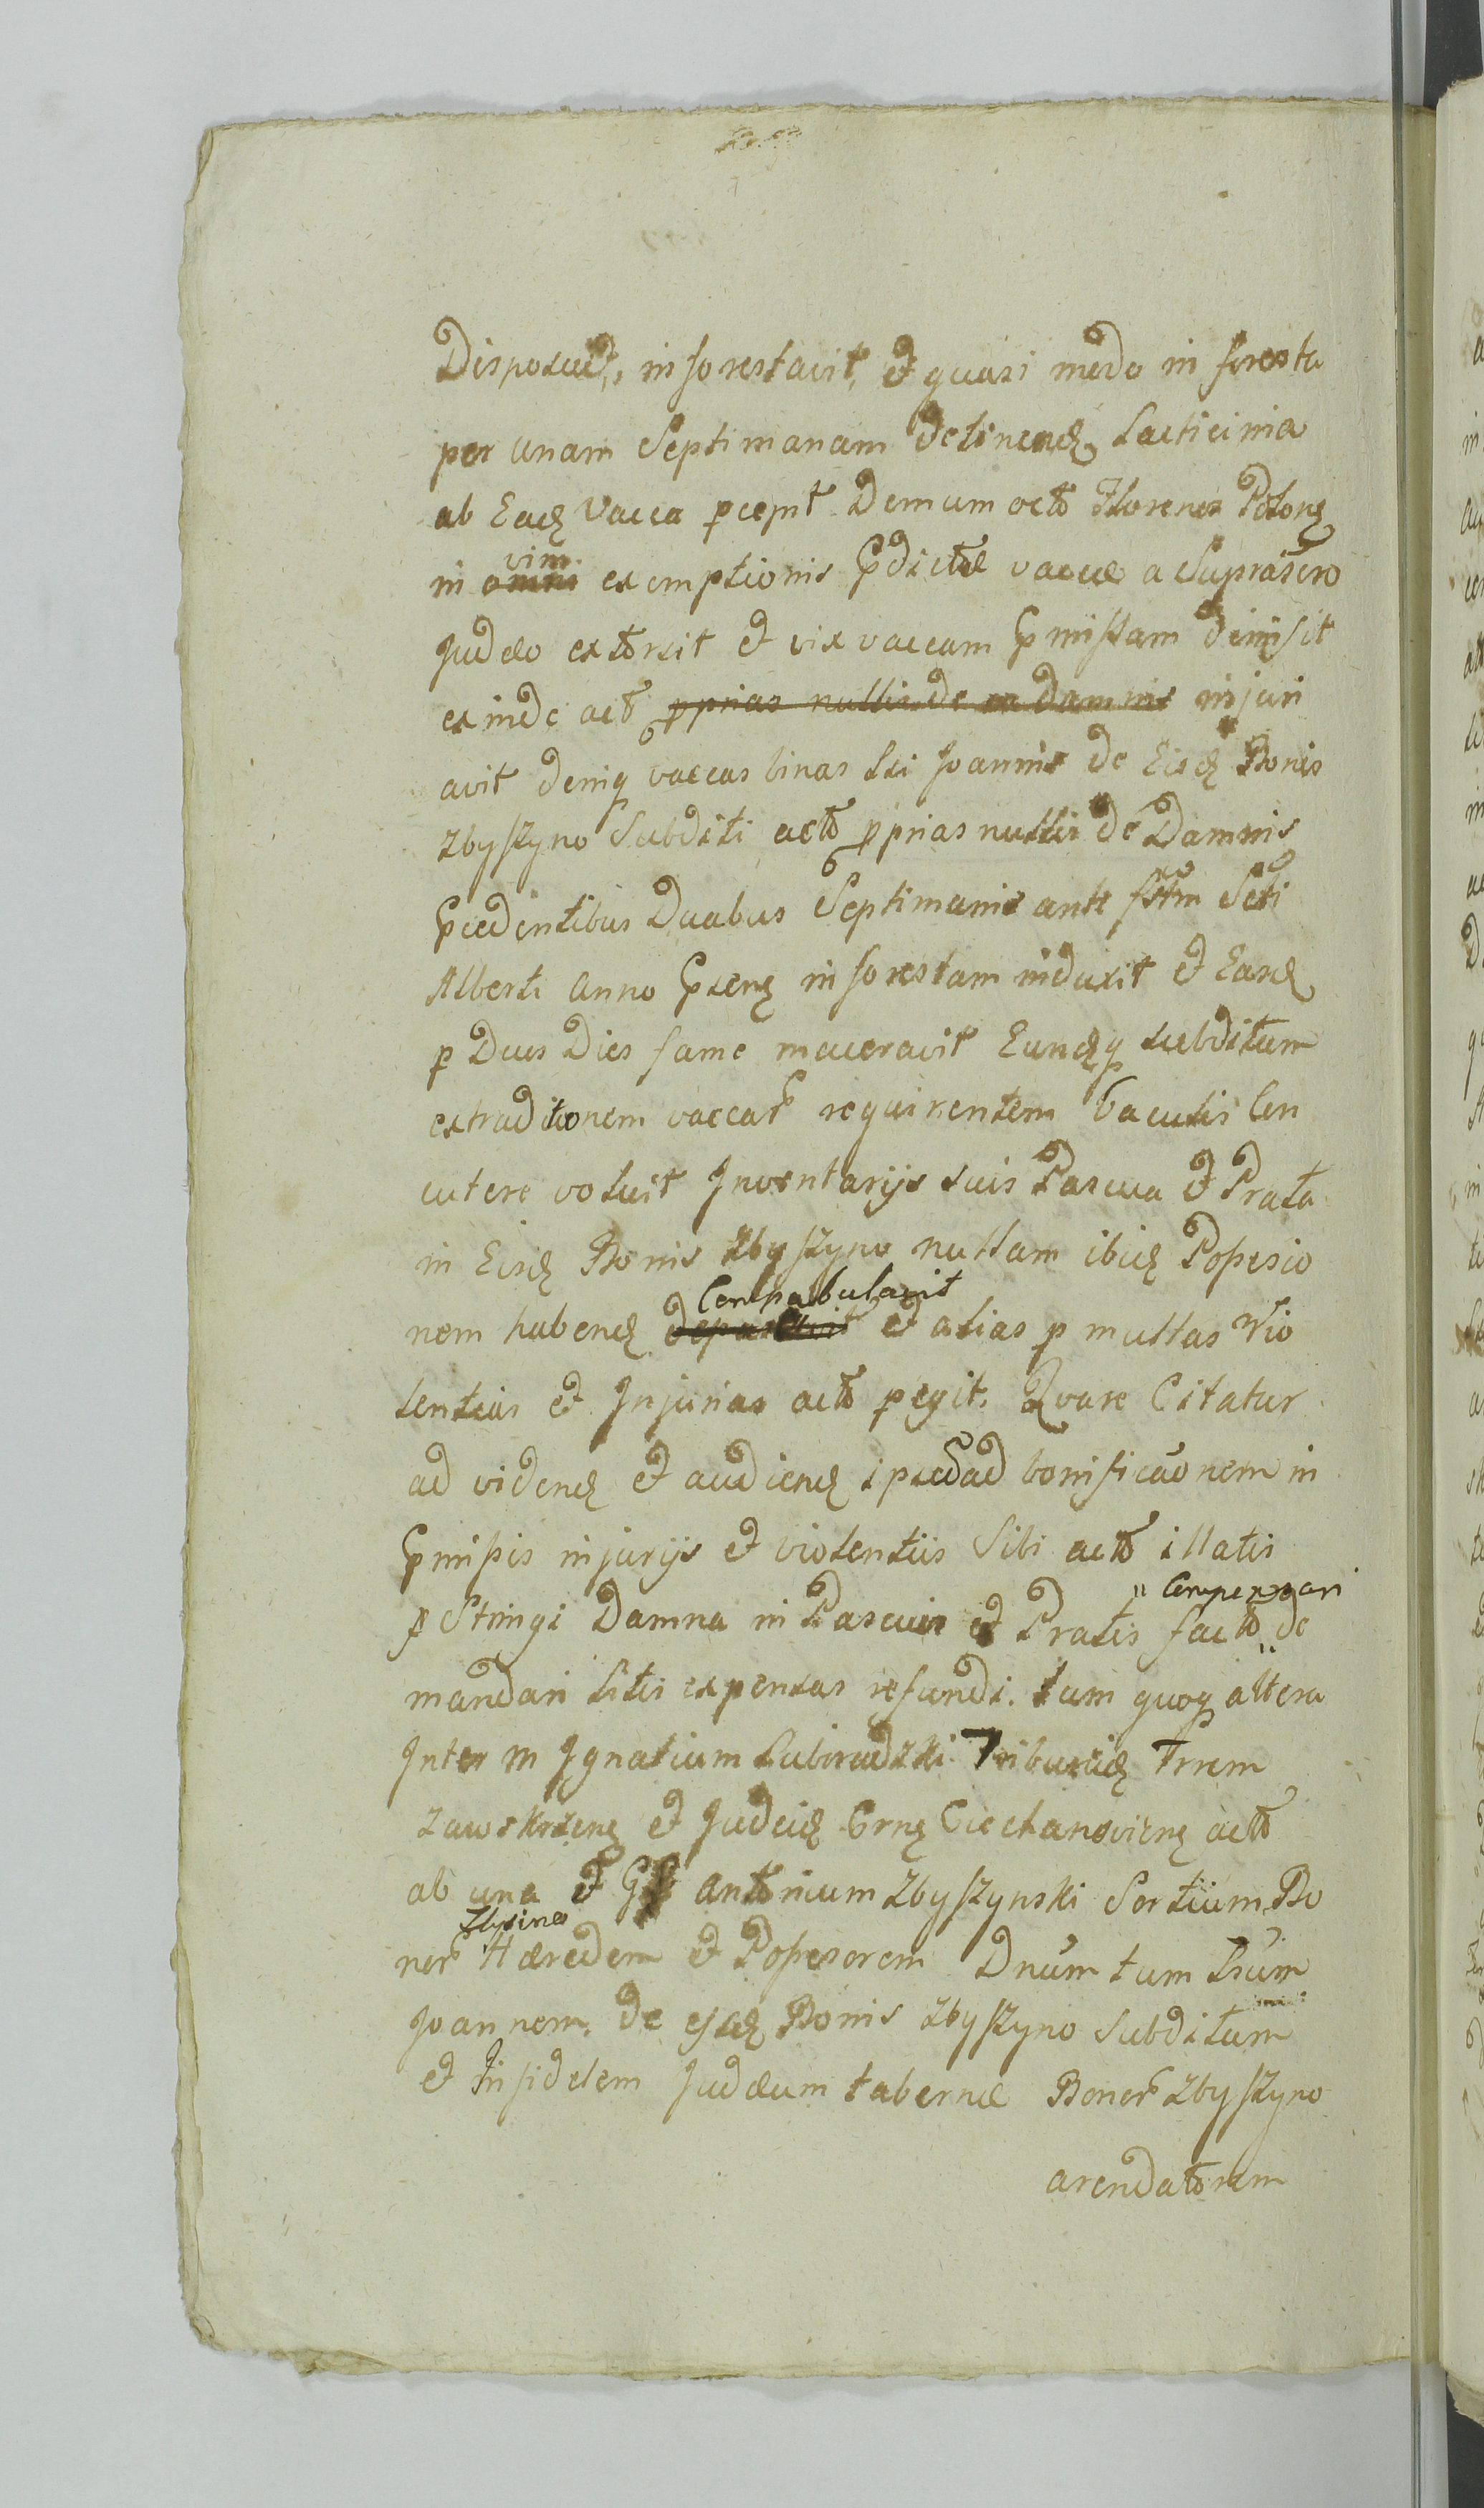 Disposuit, inforestavit, et quasi modo in foresta
per unam Septimanam detinend. Lacticinia
ab Ead. Vacca pcepit Demum octo Florenos Polon.
in vim exemptionis Pdictæ vaccæ a Suprascro
Judæo extorsit et vix vaccam Pmissam dimisit
exinde act. pprias nullis de in damnis injuri
avit deniq vaccas binas Lri Joannis de Eisd. Bonis
Zbyszyno Subditi acto pprias nullis de Damnis
Pcedentibus Duabus Septimanis ante fstm Scti
Alberti Anno Psens. in forestam induxit et Easd.
p Duas Dies fame maceravit Eundq subditum
extraditionem vaccar. requirentem baculis Con
cutere voluit Inventarijs suis Pascua et Prata
in Eisd. Bonis Zbyszyno nullam ibid. Possesio
nem habend. Compabulavit et alias p multas Vio
lentias et Injurias acto pegit. Quare Citatur
ad vidend. et audiend. ipsud ad bonificaonem in
Pmissis injurijs et violentiis Sibi acto illatis
pstringi Damna in Pascuis et Pratis facto " Compensari de
mandari Litis expensas refundi. tum quoq altera
Inter M Ignatium Lubiradzki Triburid. Trrem
Zawskrzens. et Judeid. Crns. Ciechanoviens. acto
ab una et G Antonium Zbyszynski Sortium Bo
nor. Zbysino Hæredem et Possesorem Dnum tum Lrium
Joannem. de ejsd. Bonis Zbyszyno Subditum
et Infidelem Judæum tabernæ Bonor. Zbyszyno
arendatorem